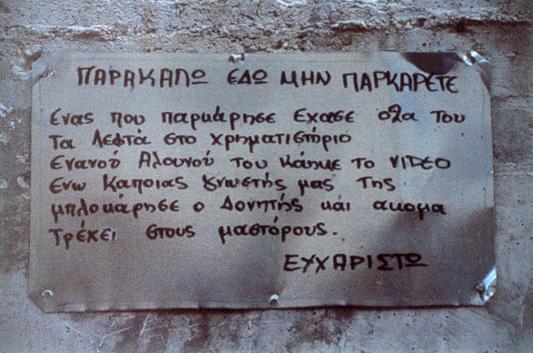 ΠΑΡΑΚΑΛΩ ΕΔΩ ΜΗΝ ΠΑΡΚΑΡΕΤΕ
Ενας που παρκάρησε Εχασε όλα του
Τα Λεφτά στο χρηματιστήριο
Ενανού Αλουνού του Κάηκε το VIDEO
Ενω Καποιας γνωστής μας της
μπλοκάρησε ο Δονητής και ακομα
Τρέχει στους μαστόρους.
ΕΥΧΑΡΙΣΤΩ